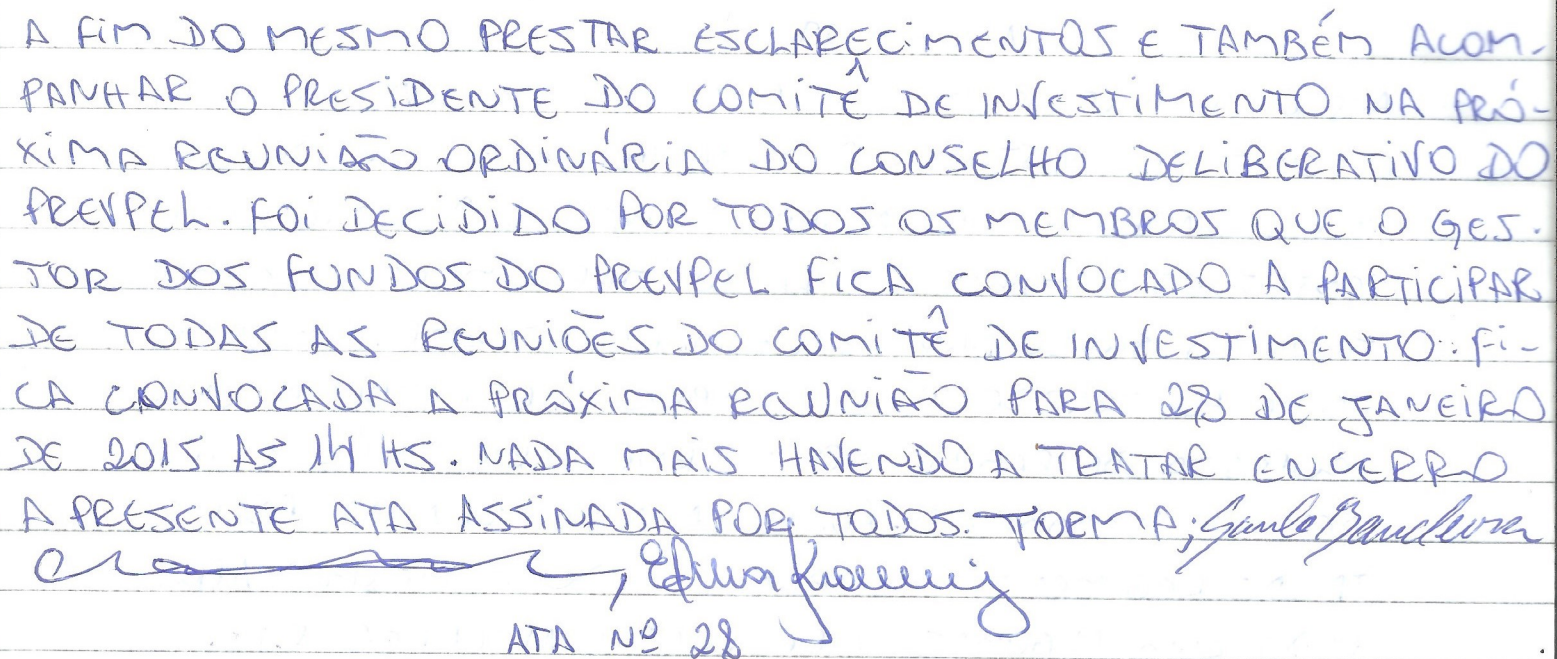 A FIM DO MESMO PRESTAR ESCLARECIMENTOS E TAMBÉM ACOM-
PANHAR O PRESIDENTE DO COMITÊ DE INVESTIMENTO NA PRÓ-
XIMA REUNIÃO ORDINÁRIA DO CONSELHO DELIBERATIVO DO
PREVPEL. FOI DECIDIDO POR TODOS OS MEMBROS QUE O GES-
TOR DOS FUNDOS DO PREVPEL FICA CONVOCADO A PARTICIPAR
DE TODAS AS REUNIÕES DO COMITÊ DE INVESTIMENTO. FI-
CA CONVOCADA A PRÓXIMA REUNIÃO PARA 28 DE JANEIRO
DE 2015 AS 14 HS. NADA MAIS HAVENDO A TRATAR ENCERRO
A PRESENTE ATA ASSINADA POR TODOS. TORMA; Bandeira
ATA Nº 28